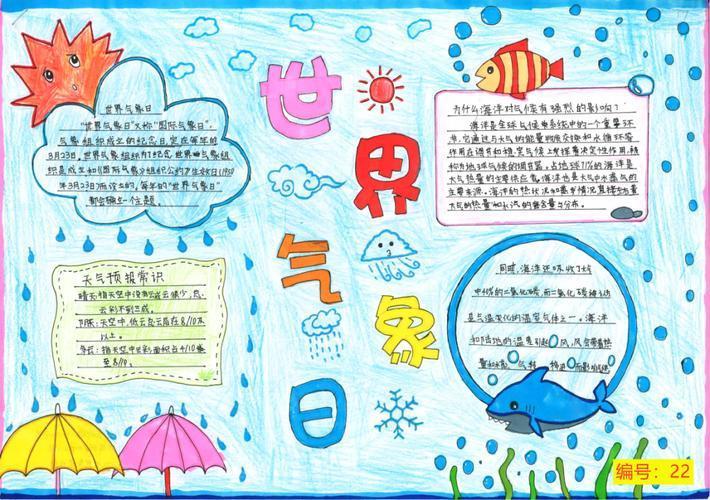 世界气象日
世界气象日
"世界气象日"又称"国际气象日",
气象组织成立的纪念日,定在每年的
3月23日。世界气象组织为了纪念世界气象组
织的成立和《国际气象公约》产生效日(1950
年3月23日)而设立的,每年的"世界气象日"
都会确定一个主题。
天气预报常识
晴天:指天空中没有云或云很少,总
云彩不到三成。
阴天:天空中,低云总云层在8/10
以上。
多云:指天空中云彩面积占4/10最
至8/10。
为什么海洋对气候有强烈的影响?
海洋是全球气候系统中的一个重要环
节,它通过与大气的能量物质交换和水循环等
作用在调节和稳定气候上发挥着决定性作用,被
称为地球气候的调节器。占地球71%的海洋是
大气热量的主要供应者,海洋也是大气中水蒸气的
主要来源。海洋的热状况和蒸发情况直接
大气的热量和水汽的含量与分布。
同时,海洋还吸收了大气
中40%的二氧化碳,而二氧化碳被认为
是气温变化的温室气体之一。海洋
和陆地的温差引起风,风会带着热
量和水
编号:22